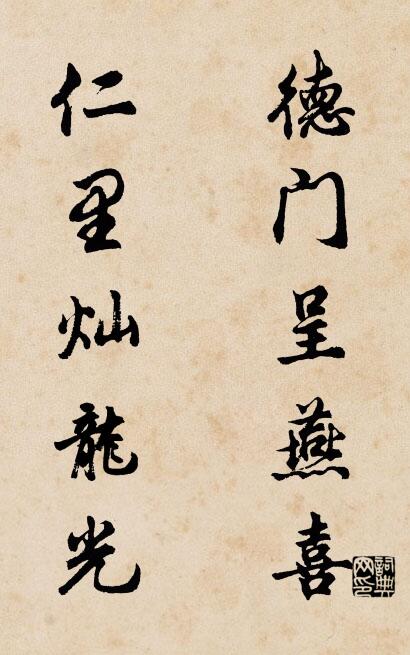 德门呈燕喜
仁里灿龍光
詞典网印